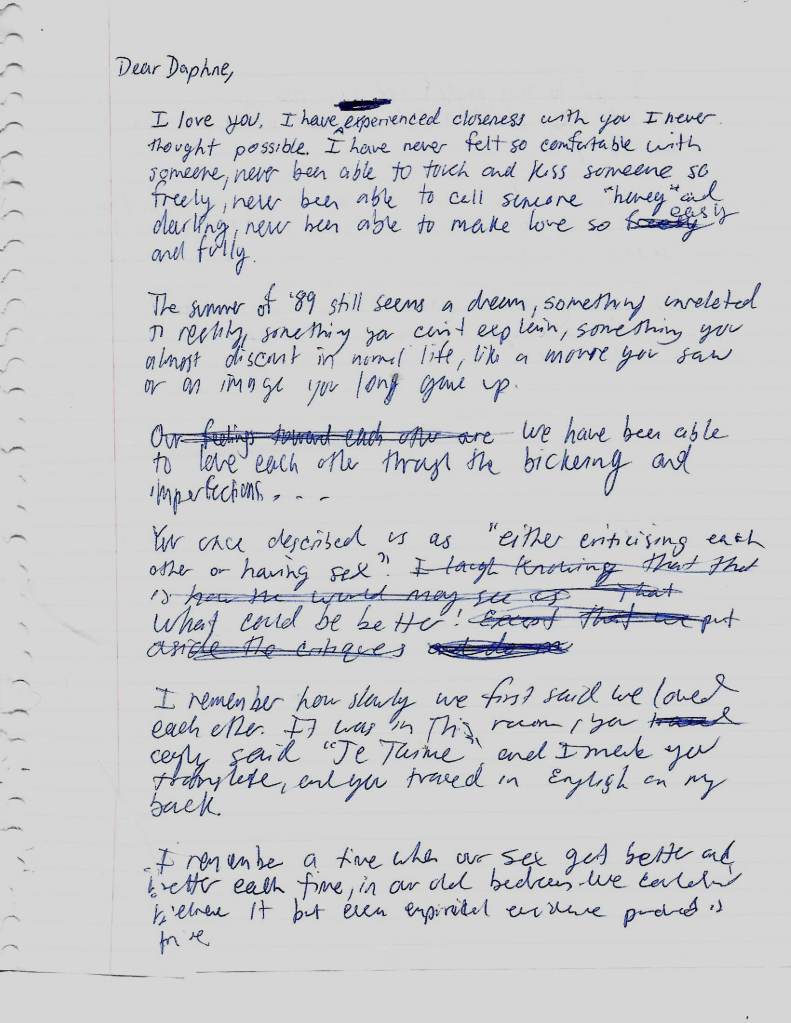 Dear Daphne,
I love you. I have experienced closeness with you I never
thought possible. I have never felt so comfortable with
someone, never been able to touch and kiss someone so
freely, never been able to call someone "honey" and
darling, never been able to make love so freely easily
and fully.
The summer of '89 still seems a dream, something unrelated
to reality, something you can't explain, something you
almost discount in normal life, like a movie you saw
or an image you long gave up.
Our feelings toward each other are We have been able
to love each other through the bickering and
imperfections. . . .
You once described us as "either criticising each
other or having sex". I laugh knowing that that
is how she would may see us That
What could be better! Except that we put
aside the critiques and
I remember how slowly we first said we loved
each other. It was in this room, you
said "Je T'aime" and I made you
translate, and you traced in English on my
back.
I remember a time when our sex got better and
better each time, in our old bedroom. We couldn't
believe it but even evidence is